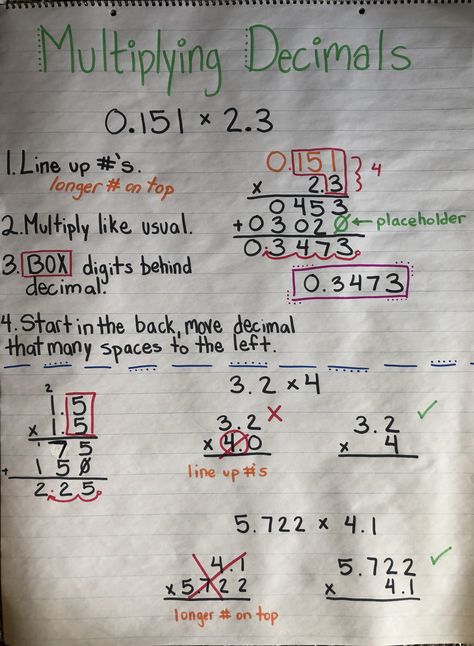 Multiplying Decimals
0.151 × 2.3
1. Line up #'s.
longer # on top
0.151
× 2.3
4
0 453
+0 302 0 ← placeholder
0.3473
0.3473
2. Multiply like usual.
3. BOX digits behind
decimal.
4. Start in the back, move decimal
that many spaces to the left.
2
1.5
× 1.5
1
75
+ 150
2.25
3.2 × 4
3.2 ×
× 4.0
line up #'s
3.2 ✓
× 4
5.722 × 4.1
4.1
× 5.722
longer # on top
5.722 ✓
× 4.1